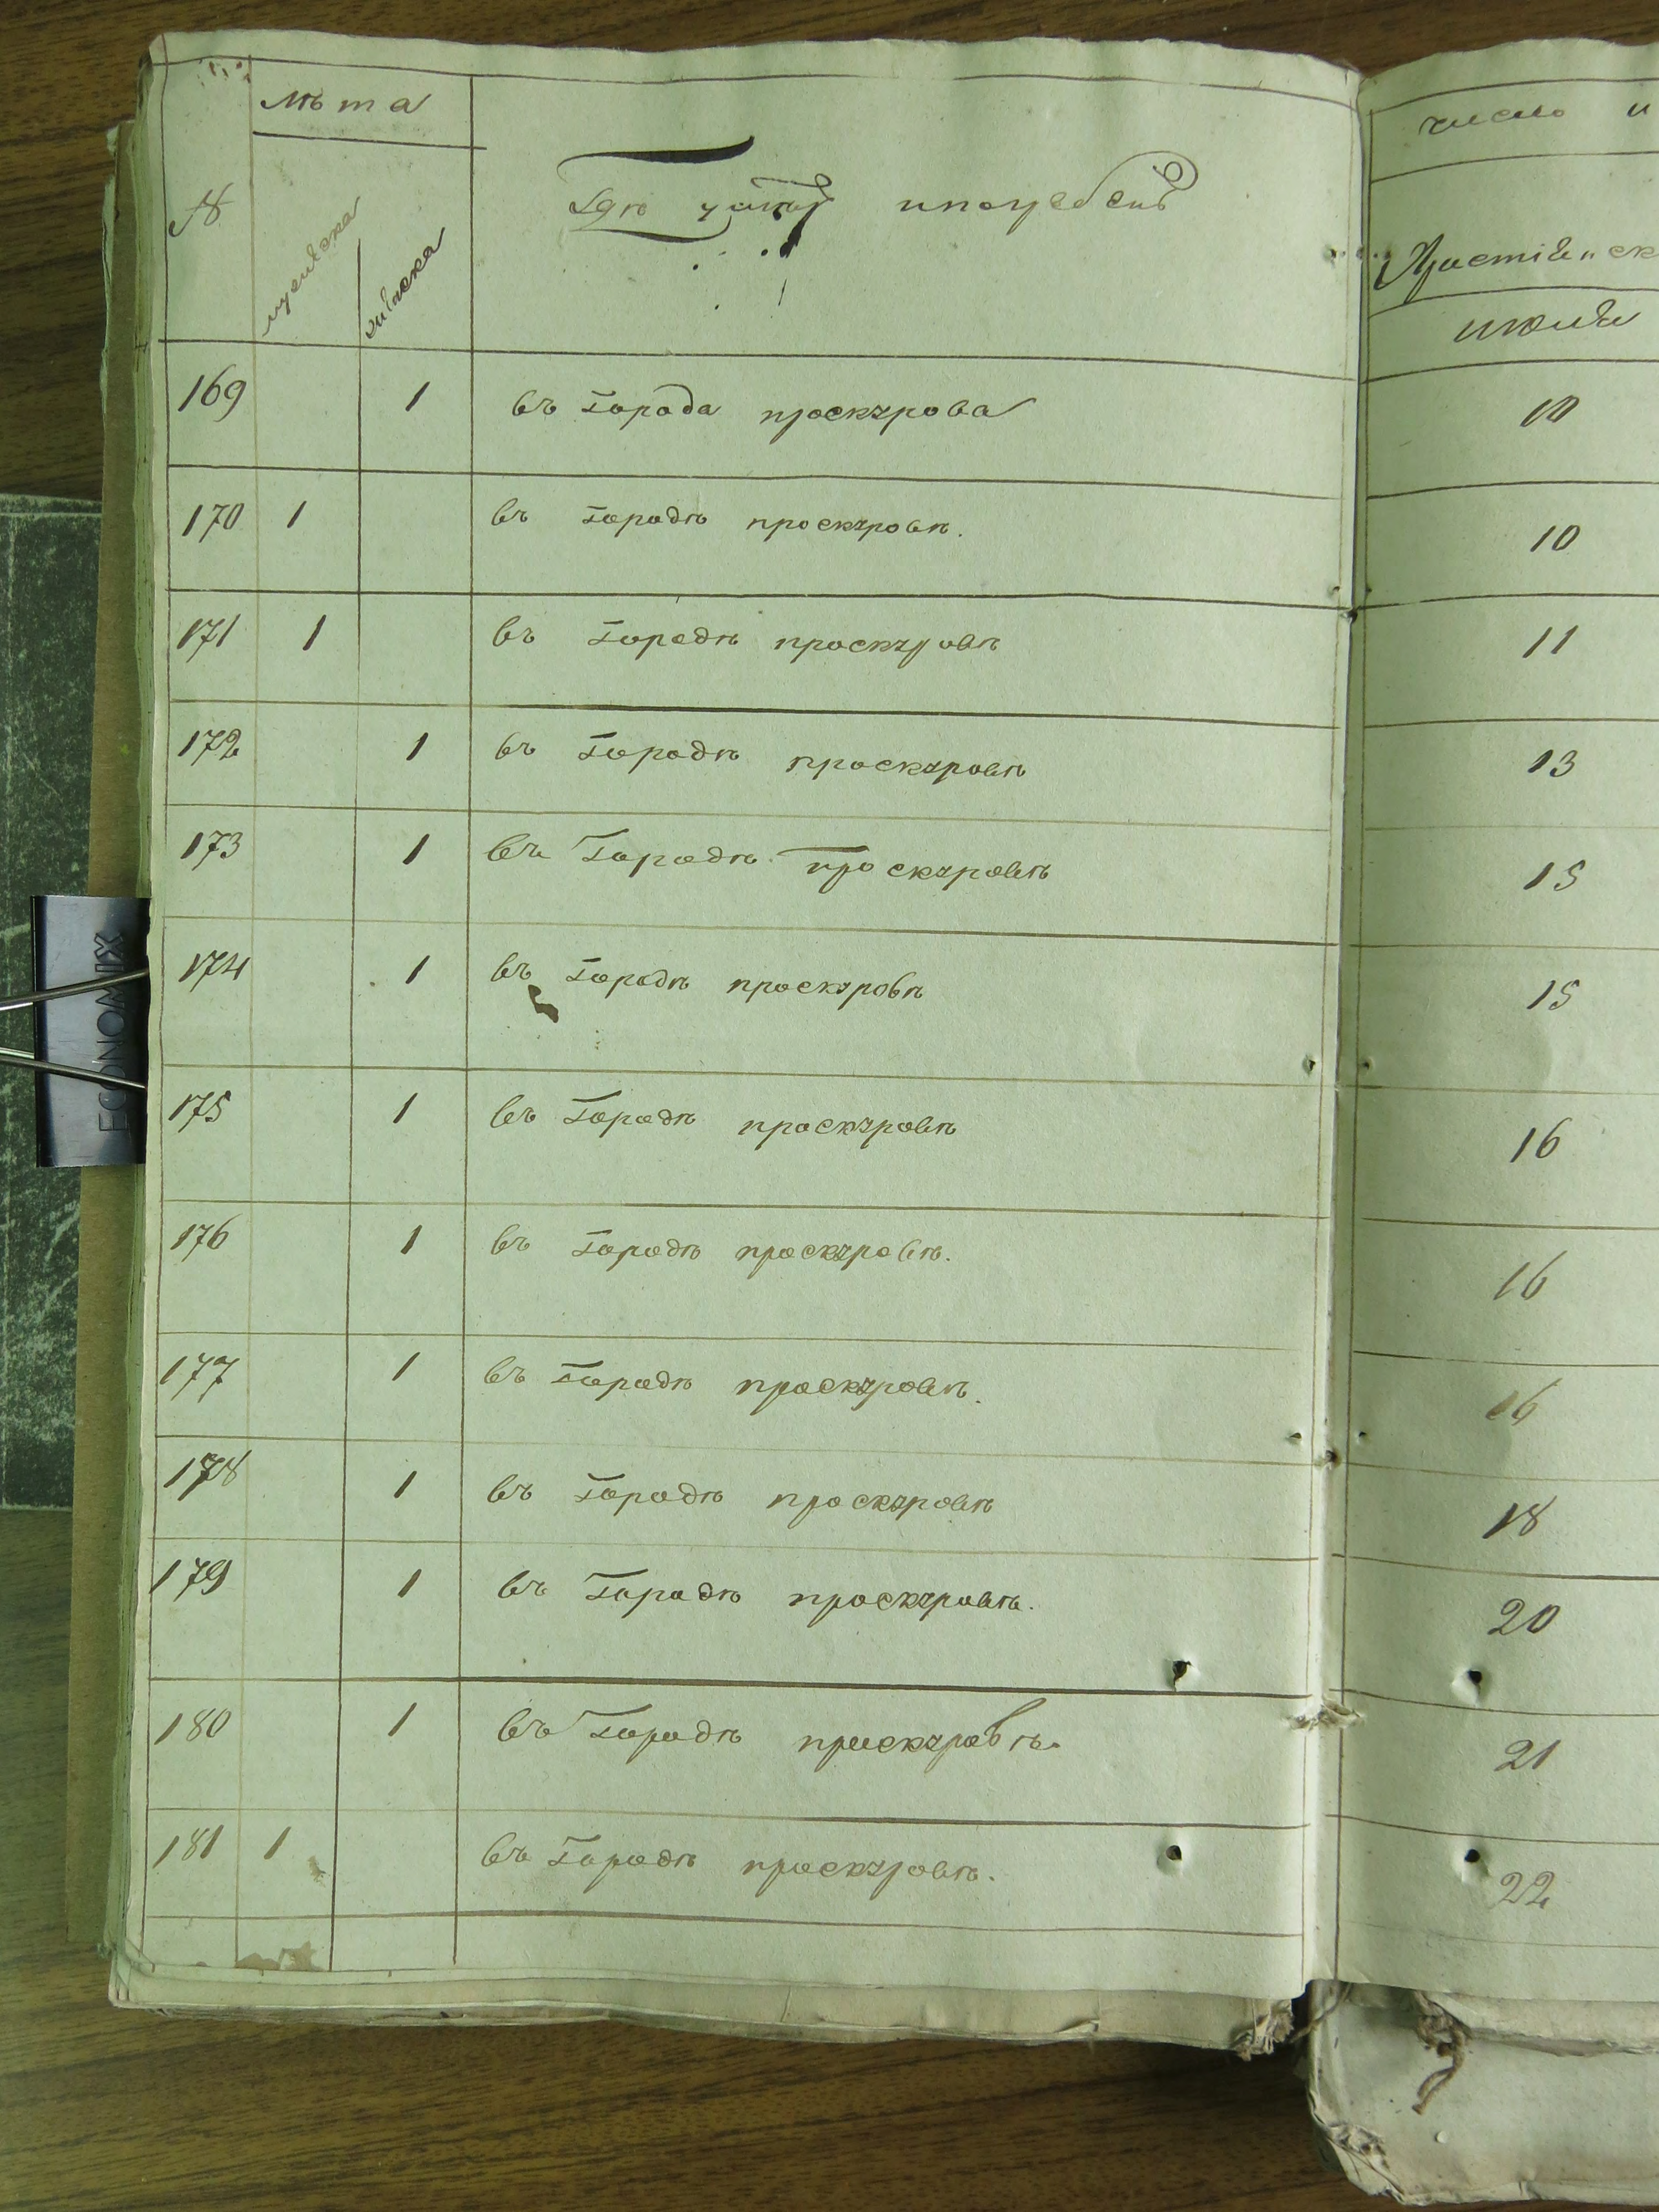 №
лѣта
мужеска
женска
Гдѣ умер и погребенъ
число и
Христіанск
июля
169 1 въ Города проскурова 10
170 1 въ Городѣ проскуровѣ. 10
171 1 въ Городѣ проскуровѣ 11
172 1 въ Городѣ проскуровѣ 13
173 1 въ Городѣ проскуровѣ 15
174 1 въ Городѣ проскуровѣ 15
175 1 въ Городѣ проскуровѣ 16
176 1 въ Городѣ проскуровѣ. 16
177 1 въ Городѣ проскуровѣ. 16
178 1 въ Городѣ проскуровѣ 18
179 1 въ Городѣ проскуровѣ. 20
180 1 въ Городѣ проскуровѣ. 21
181 1 въ Городѣ проскуровѣ. 22
ECONOMIX